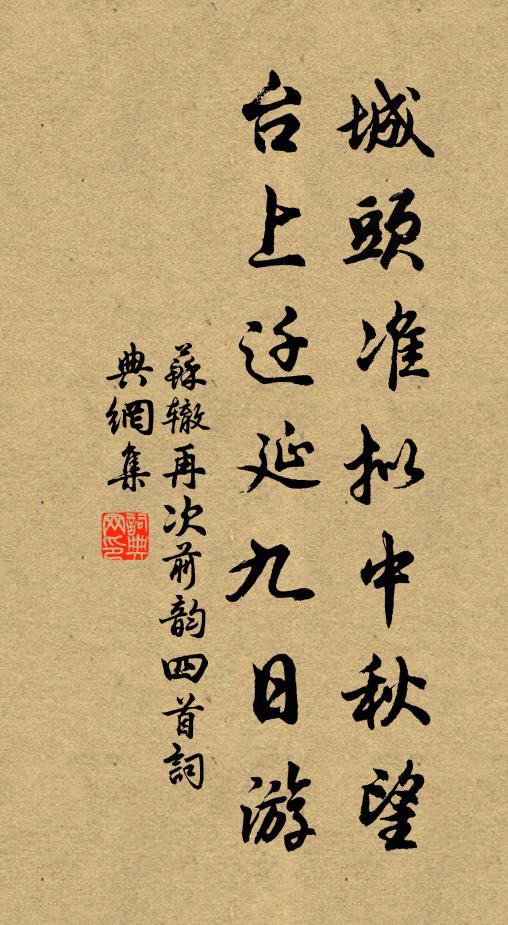 城頭准拟中秋望
台上迁延九日游
蘇辙再次前韵四首詞
典網集
詞典网印